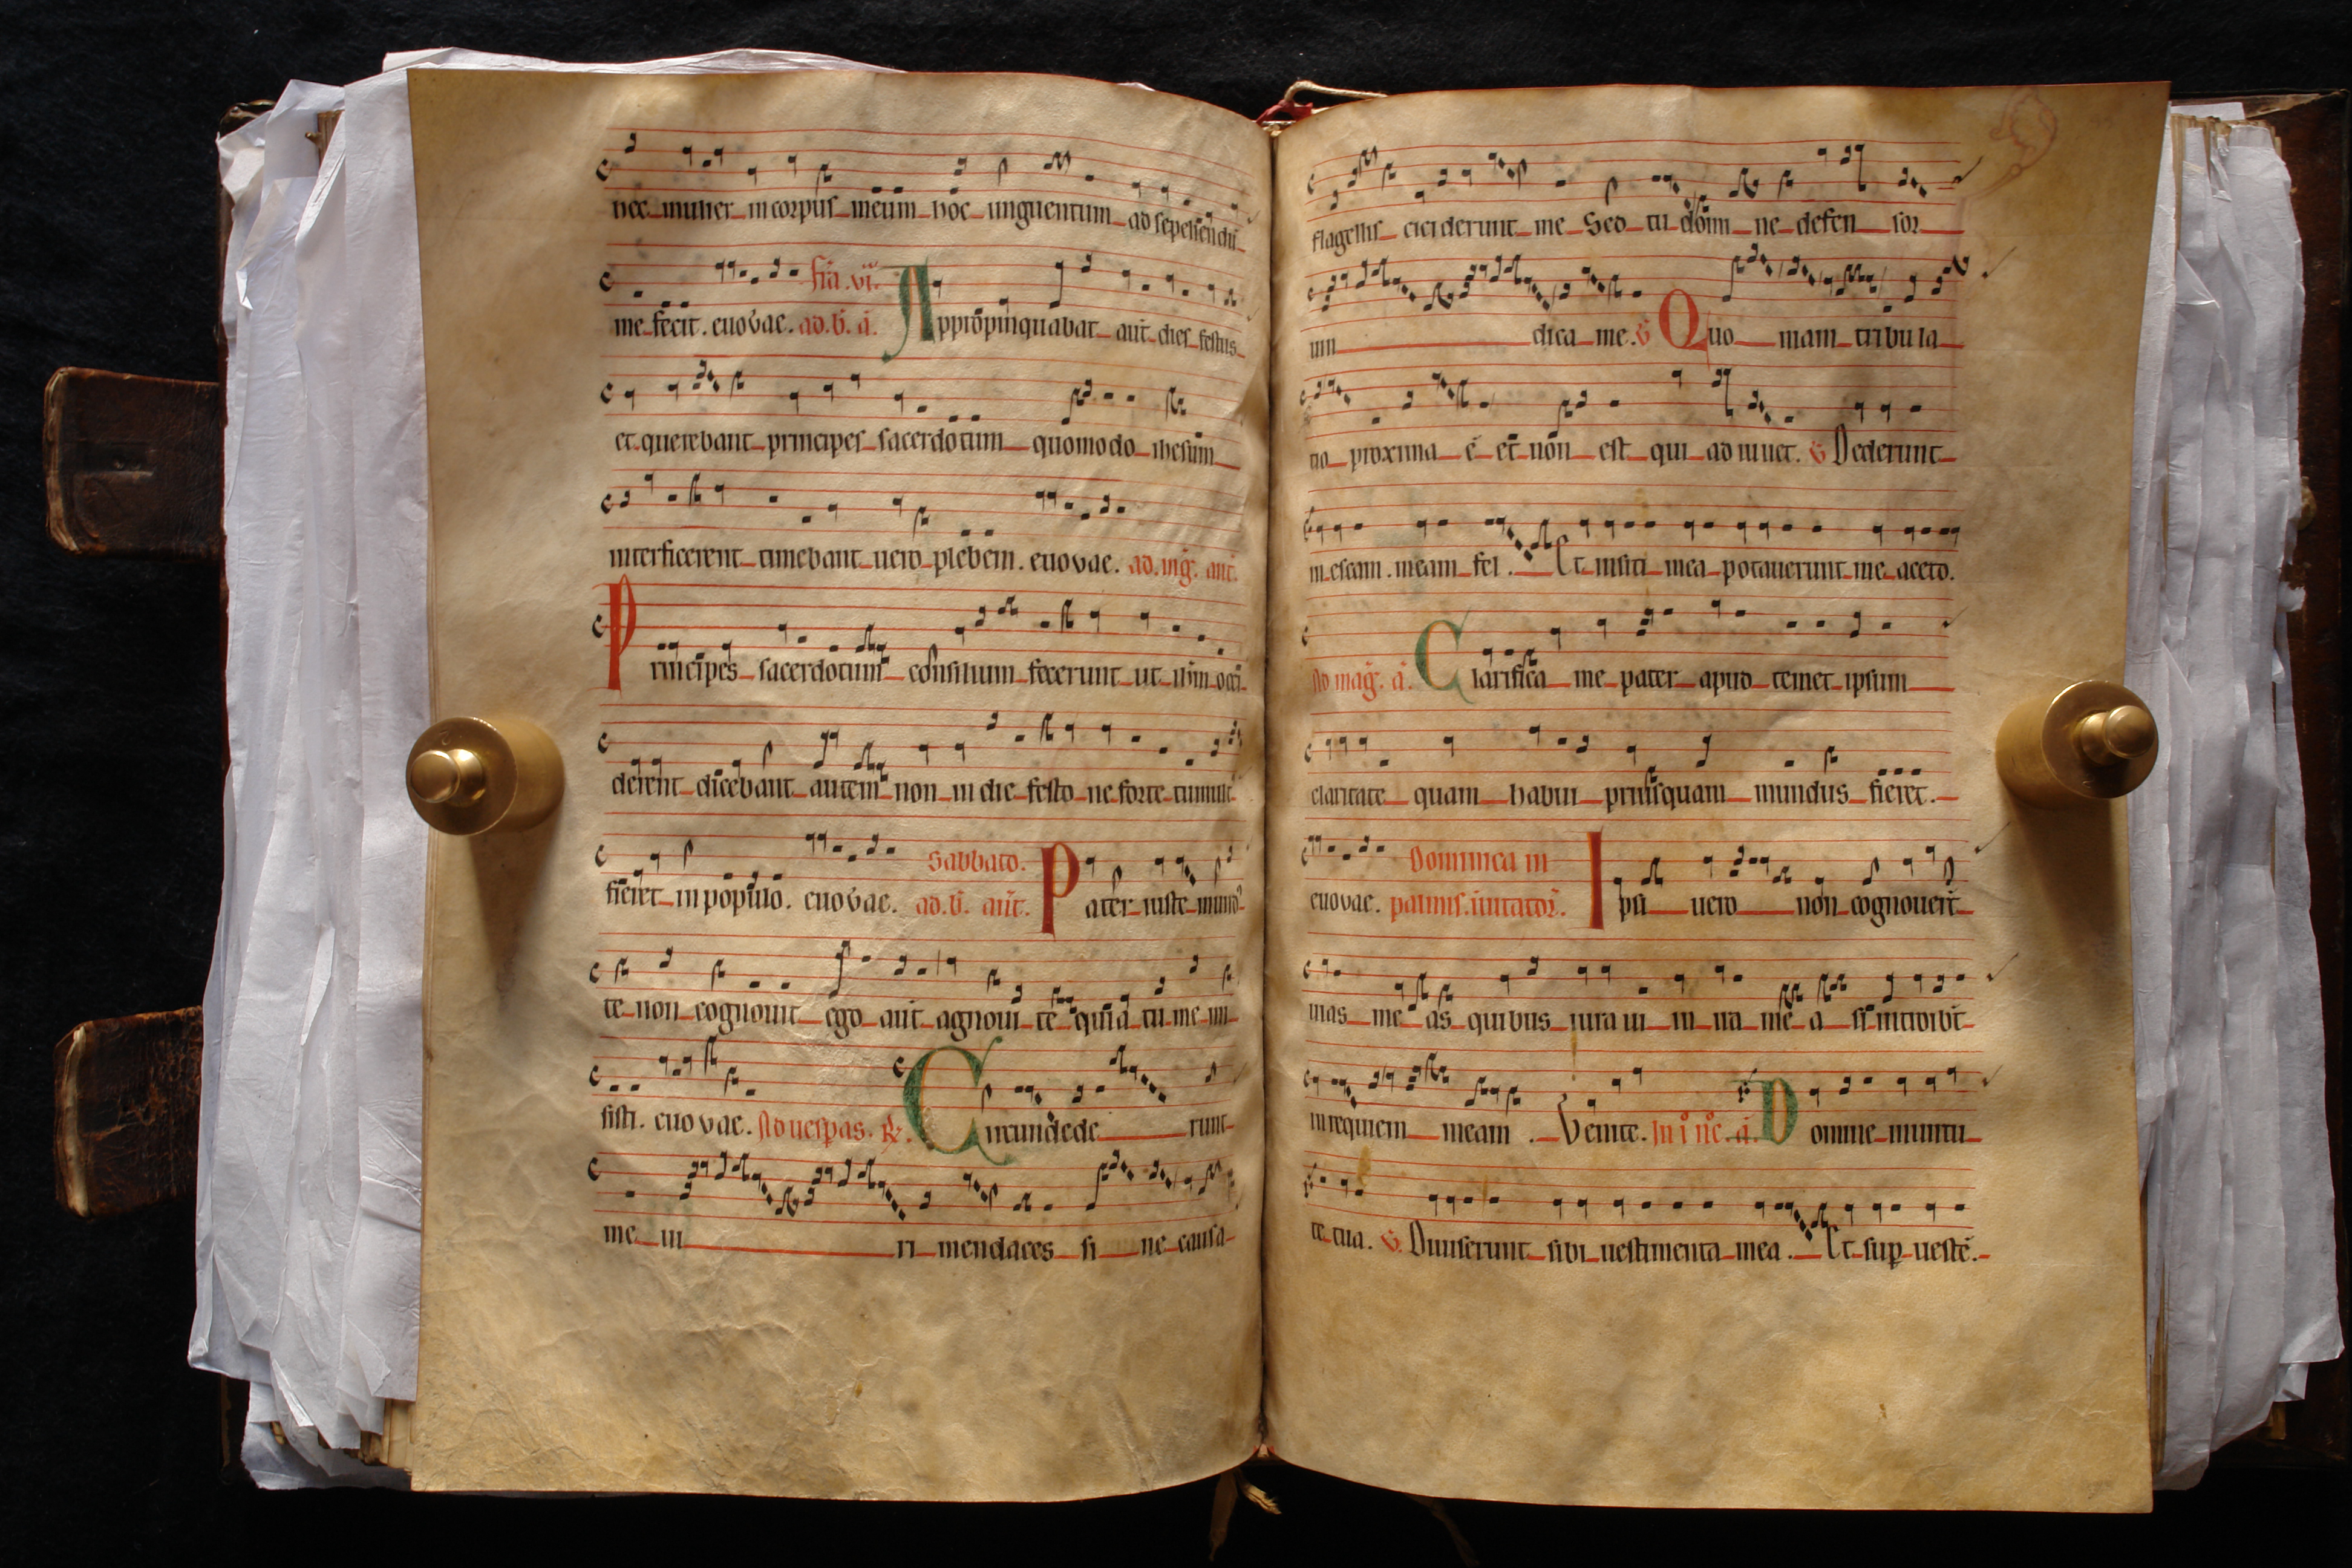 hec mulier in corpus meum hoc unguentum ad sepeliendū
me fecit. euouae. fīa .vi. ad .b̄. ā. Appropinquabat aūt dies festus
et querebant principes sacerdotum quomodo ihesum
interficerent timebant uero plebem. euouae. ad .mḡ. añt.
Principes sacerdotum consilium fecerunt ut ihm occi
derent dicebant autem non in die festo ne forte tumult
fieret in populo. euouae. Sabbato. ad .b̄. añt. Pater iuste mund
te non cognouit ego aūt agnoui te quia tu me mi
sisti. euouae. Ad uesp̄as. ℟. Circundede runt
me ui ri mendaces si ne causa
flagellis ceciderunt me Sed tu domi ne defen sor
uin dica me. ℣ Quo niam tribula
tio proxima ē et non est qui adiuuet. ℣ Dederunt
in escam meam fel. Et in siti mea potauerunt me aceto.
Ad maḡ. ā. Clarifica me pater apud temet ipsum
claritate quam habui priusquam mundus fieret.
euouae. Dominica in palmis. inuitator̄. Ipsi uero non cognouer̄t
uias me as quibus iura ui in ira me a si introibt
in requiem meam. Venite. In i nc̄. ā. Domine uirtu
te tua. ℣. Diuiserunt sibi uestimenta mea. Et sup uestē.